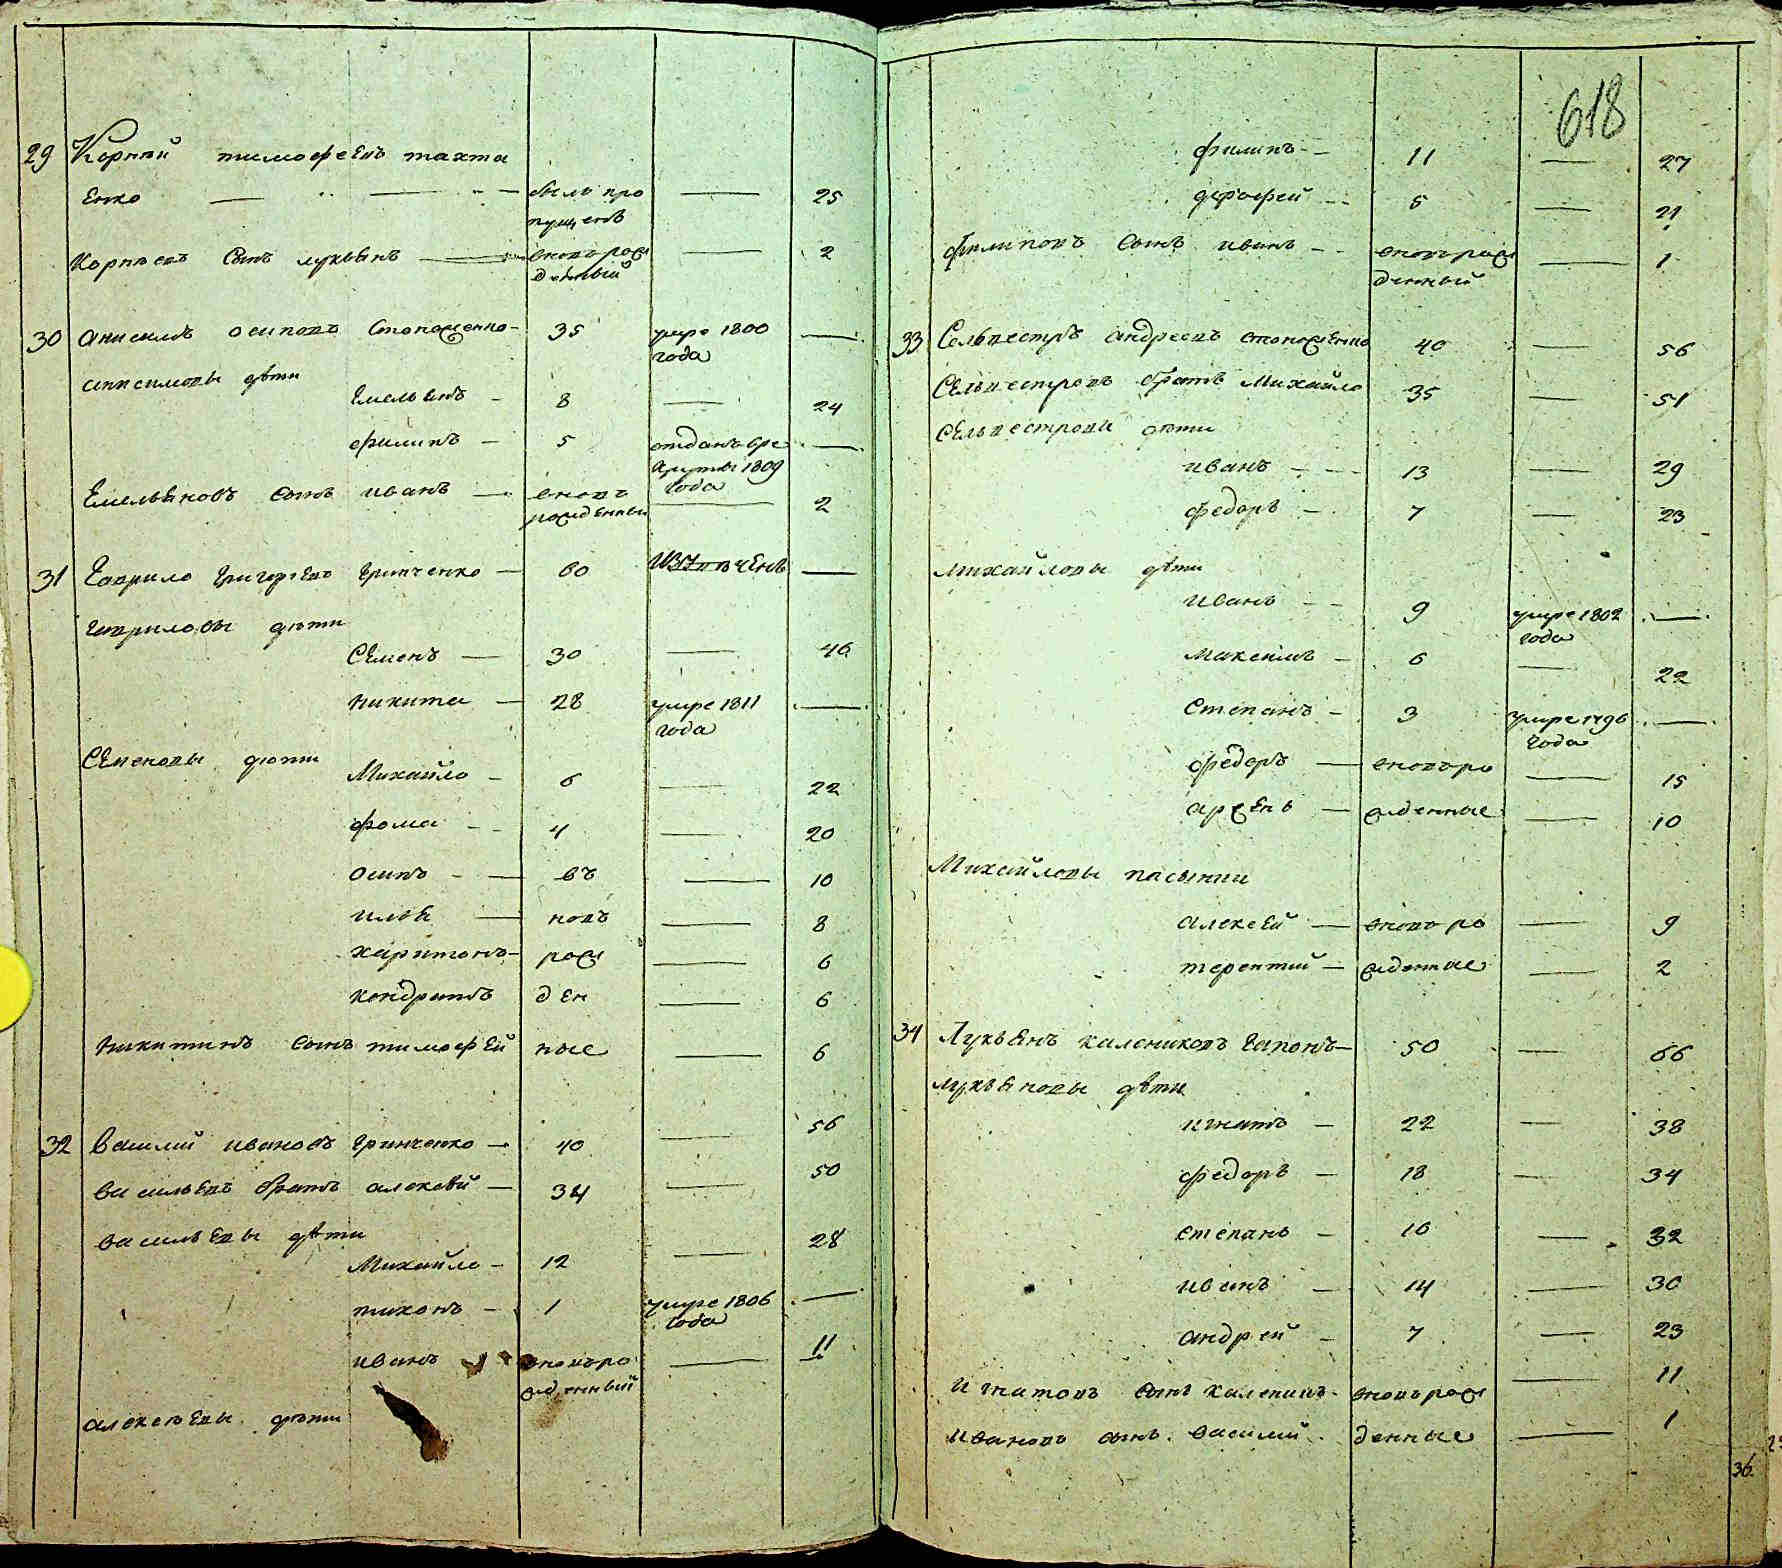 29 Корнѣй тимофеевъ тахта
енко — былъ про — 25
пущенъ
Корнѣевъ сынъ лукьянъ — вновьрож — 2
денный
30 анисимъ осиповъ Стопоженко- 35 умре 1800 —
года
анисимовы дѣти
Емельянъ - 8 — 24
филипъ - 5 отданъ вре —
круты 1809
года
Емельяновъ сынъ иванъ — вновь — 2
рожденный
31 Гаврило григорьевъ гринченко — 60 —
гавриловы дѣти
Семенъ — 30 — 46
никита — 28 умре 1811 —
года
Семеновы дѣти
Михайло - 6 — 22
фома - 4 — 20
осипъ - — въ — 10
илья — новь — 8
харитонъ - рож — 6
кондратъ ден — 6
никитинъ сынъ тимофей ные — 6
32 василий ивановъ гринченко — 40 — 56
васильевъ братъ алексѣй — 34 — 50
васильевы дѣти
Михайло - 12 — 28
тихонъ - 1 умре 1806 —
года
иванъ вновьро — 11
жденный
алексѣевы дѣти
618
филипъ - 11 — 27
дорофей - 5 — 21
филиповъ сынъ иванъ - вновьрож — 1
денный
33 Сельвестръ андреевъ стопоженко 40 — 56
Сельвестровъ братъ Михайло 35 — 51
Сельвестровы дѣти
иванъ - 13 — 29
федоръ - 7 — 23
михайловы дѣти
иванъ - 9 умре 1802 —
года
максимъ - 6 — 22
степанъ - 3 умре 1796 —
года
федоръ — вновьро — 15
арсень — жденные — 10
Михайловы пасынки
алексей — вновьро — 9
терентий — жденные — 2
34 Лукьянъ калениковъ гапонъ — 50 — 66
лукьяновы дѣти
игнатъ - 22 — 38
федоръ - 18 — 34
степанъ - 16 — 32
иванъ - 14 — 30
андрей - 7 — 23
игнатовъ сынъ каленикъ - вновьрож — 11
ивановъ сынъ василий денные — 1
36